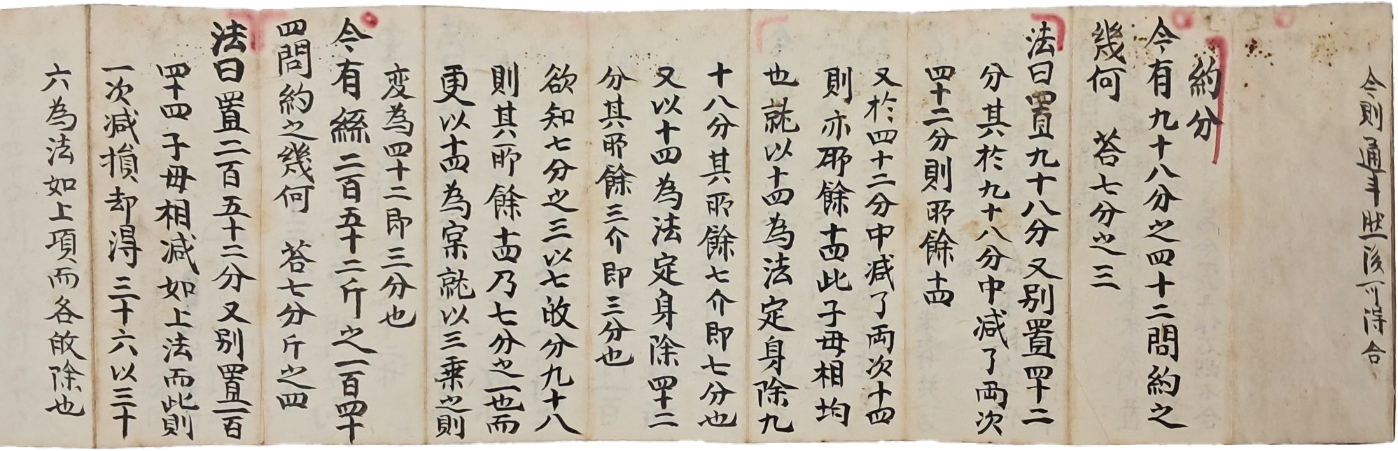 令則通斗然後可得合
約分
今有九十八分之四十二問約之
幾何　荅七分之三
法曰置九十八分又別置四十二
分其於九十八分中减了兩次
四十二分則所餘十四
又於四十二分中减了兩次十四
則亦所餘十四此子母相均
也就以十四為法定身除九
十八分其所餘七介即七分也
又以十四為法定身除四十二
分其所餘三介即三分也
欲知七分之三以七收分九十八
則其所餘十四乃七分之一也而
更以十四為實就以三乗之則
変為四十二即三分也
今有絲二百五十二斤之一百四十
四問約之幾何　荅七分斤之四
法曰置二百五十二分又別置一百
四十四子母相减如上法而此則
一次减損却得三十六以三十
六為法如上項而各收除也